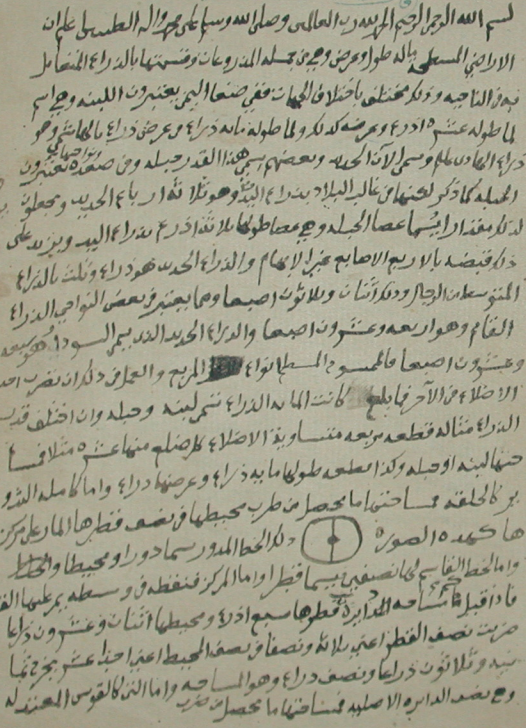 بسم الله الرحمن الرحيم الحمد لله رب العالمين وصلى الله وسلم على محمد واله الطيبين اعلم ان
الاراضي المسطحة ماله طول وعرض وهي من جمله المذروعات وقسمتها بالذراع المتعامل
فيه في الناحيه وذلك مختلف باختلاف الجهات ففي صنعا اليمن يعتبرون اللبنه وهي اسم
لما طوله عشره اذرع وعرضه كذلك ولما طوله مايه ذراع في عرض ذراع
ذراع الهادي عليلم ويسمى الآن الحديد وبعضهم يسمي هذا القدر حبله وفي صعده يعتبرون
الحبله كما ذكر لكنها في غالب البلاد بذراع اليد وهو ثلاثة ارباع الحديد ويجعلون
لذلك مقدارا يسما عصا الحبله وهي عصا طولها ثلاثة اذرع بذراع اليد ويزيد على
ذلك قبضه بالاربع الاصابع غير الابهام والذراع الحديد هو ذراع وثلث بالذراع
المتوسط من الرجال وذلك اثنان وثلاثون اصبعا وهما يعتبر في بعض النواحي الذراع
القام وهو اربعه وعشرون اصبعا والذراع الحديد الذي يسمى السودا هو سبعه
وعشرون اصبعا فالممسوح المسطح انواع المربع والعمل في ذلك ان تضرب احد
الاضلاع في الآخر فما بلغ كانت المايه الذراع تسمى لبنه وحبله وان اختلف قدر
الذراع مثاله قطعه مربعه متساوية الاضلاع كل ضلع منها عشره مثلا فمسا
حتها لبنه او حبله وكذا قطعه طولها مايه ذراع وعرضها ذراع واما كامله التدو
ير كالحلقه فمساحتها ما يحصل من ضرب محيطها في نصف قطرها المار على مركز
ها كهذه الصوره ذلك الخط المدور يسما دورا ومحيطا
واما الخط القاسم لها نصفين يسما قطرا واما المركز فنقطه في وسطه يمر عليها القطر
فاذا قيل كم مساحه الدايرة قطرها سبع اذرع ومحيطها اثنان وعشرون ذراعا
ضربت نصف القطر اعني ثلاثه ونصفا في نصف المحيط اعني احدا عشر يخرج ثما
نيه وثلاثون ذراعا ونصف ذراع وهو المساحه واما التي كالقوس المعتدله
وهي نصف الدايره الاصليه فمساحتها ما يحصل من ضرب